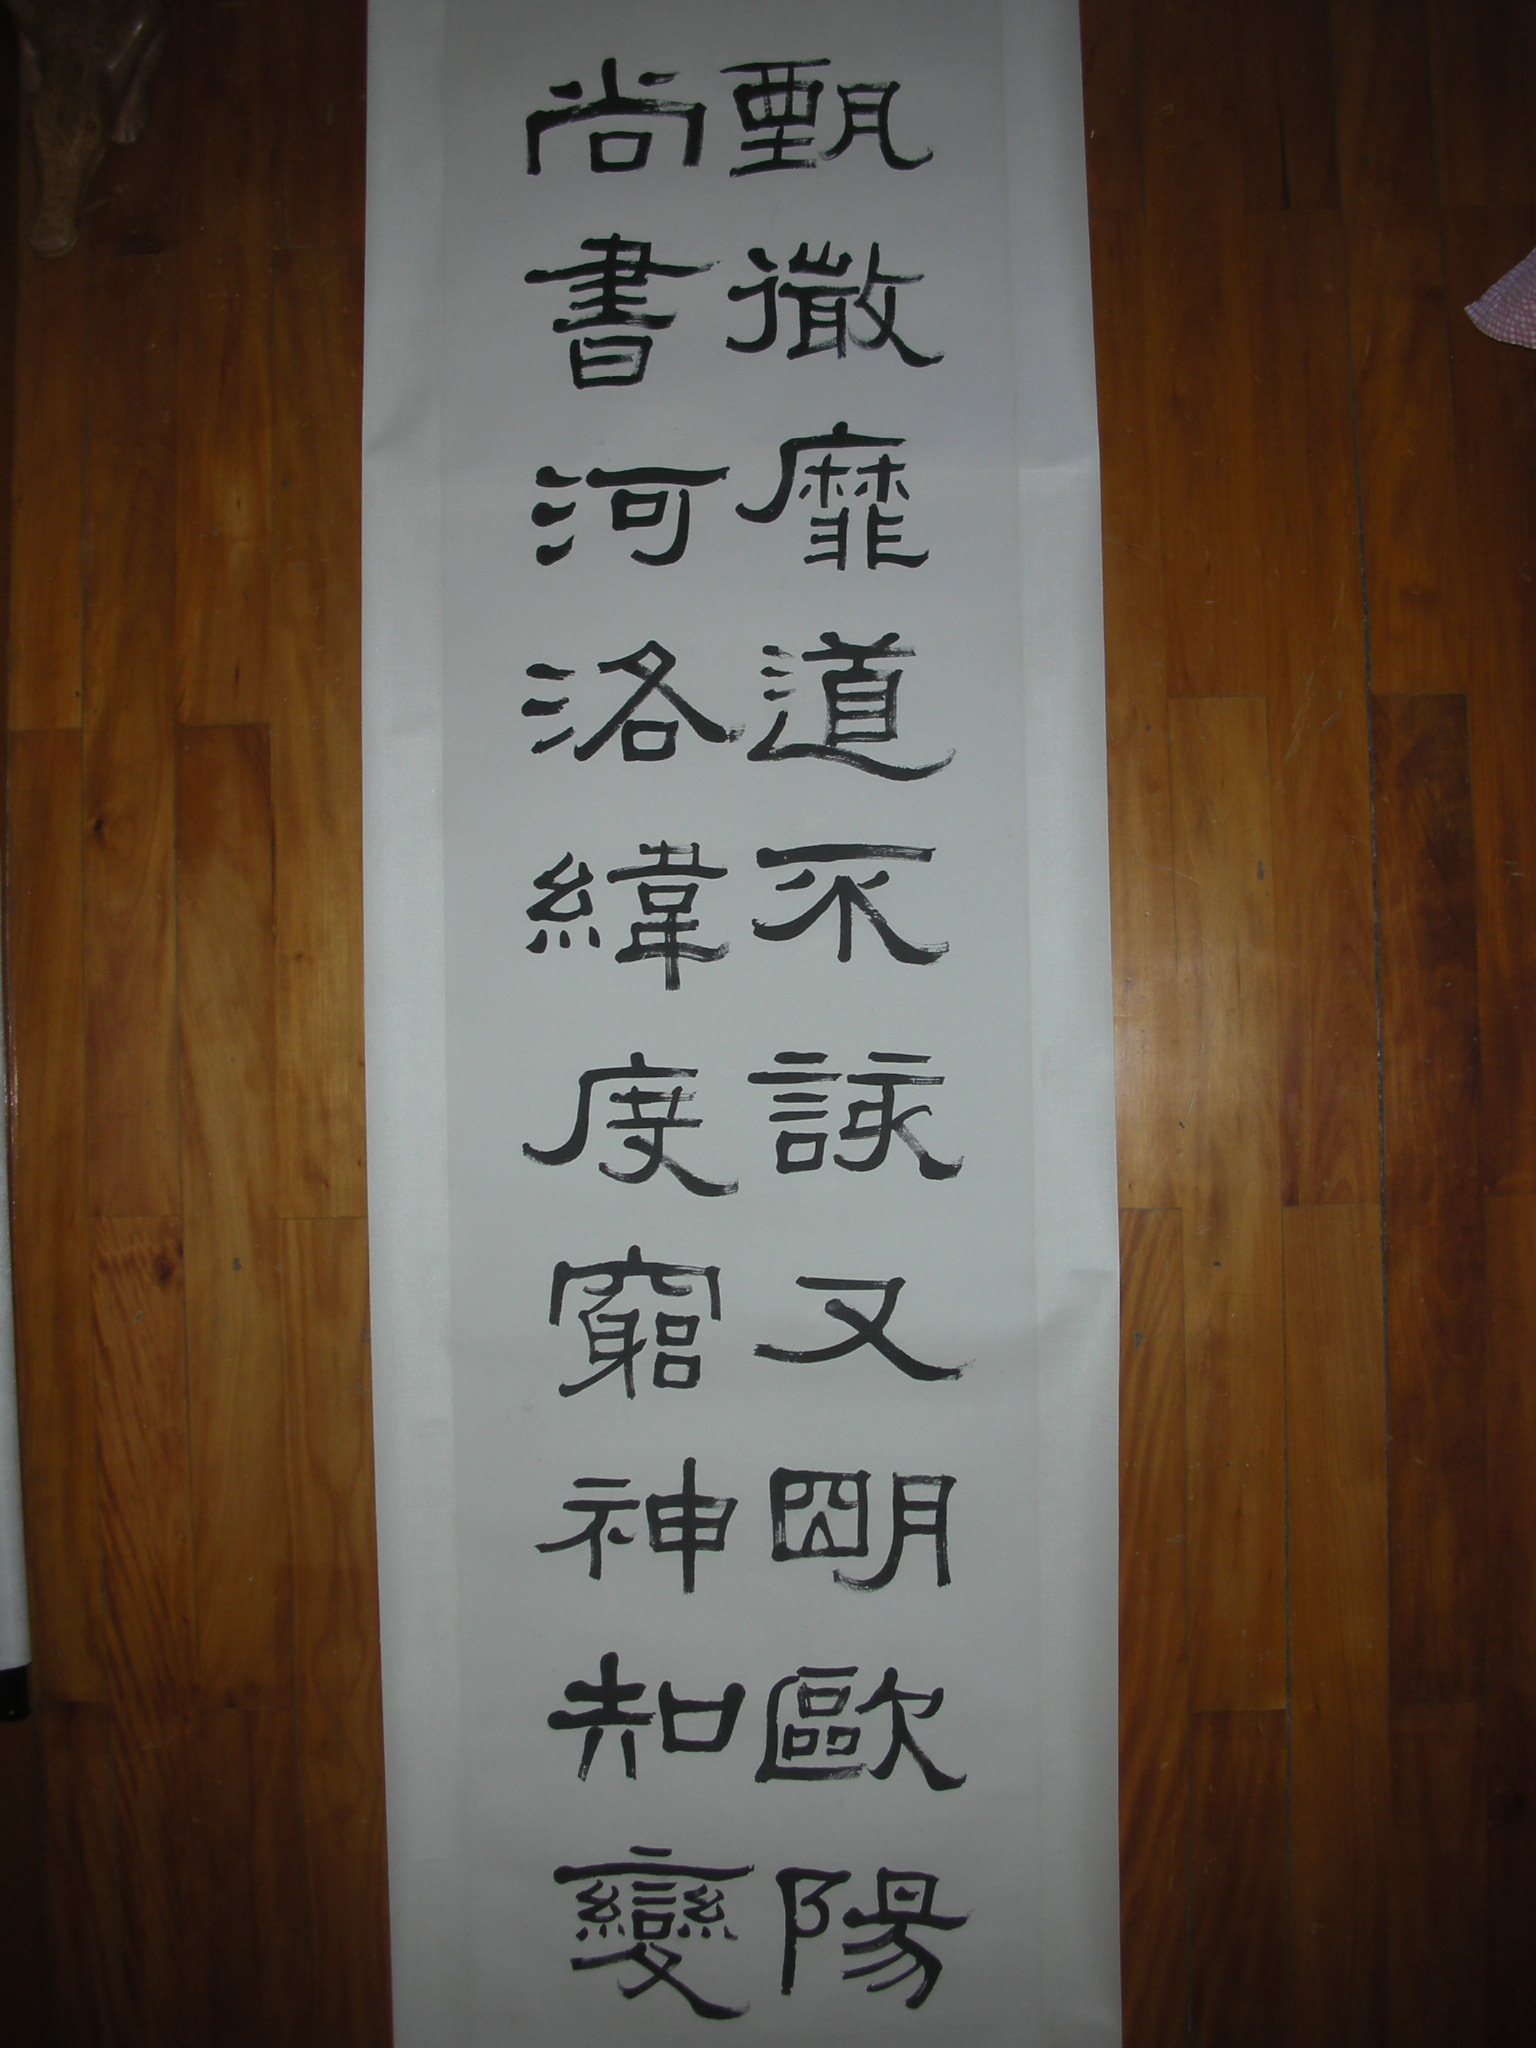 甄微靡道不該又明歐陽
尚書河洛緯度窮神知變